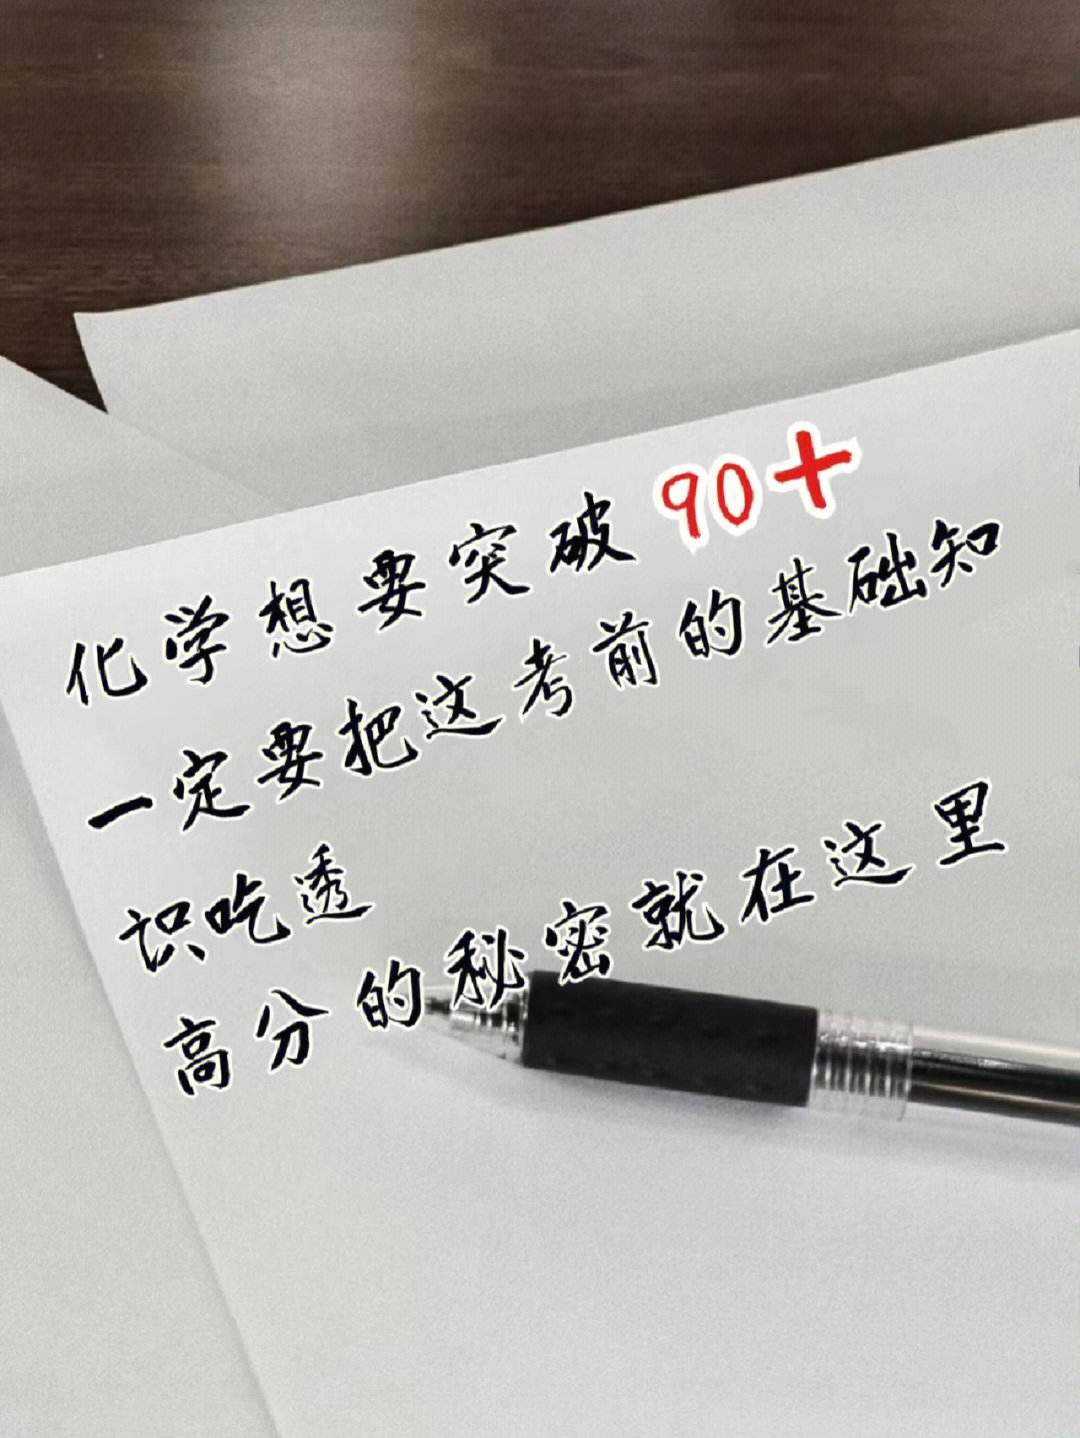 化学想要突破90+
一定要把这考前的基础知
识吃透
高分的秘密就在这里